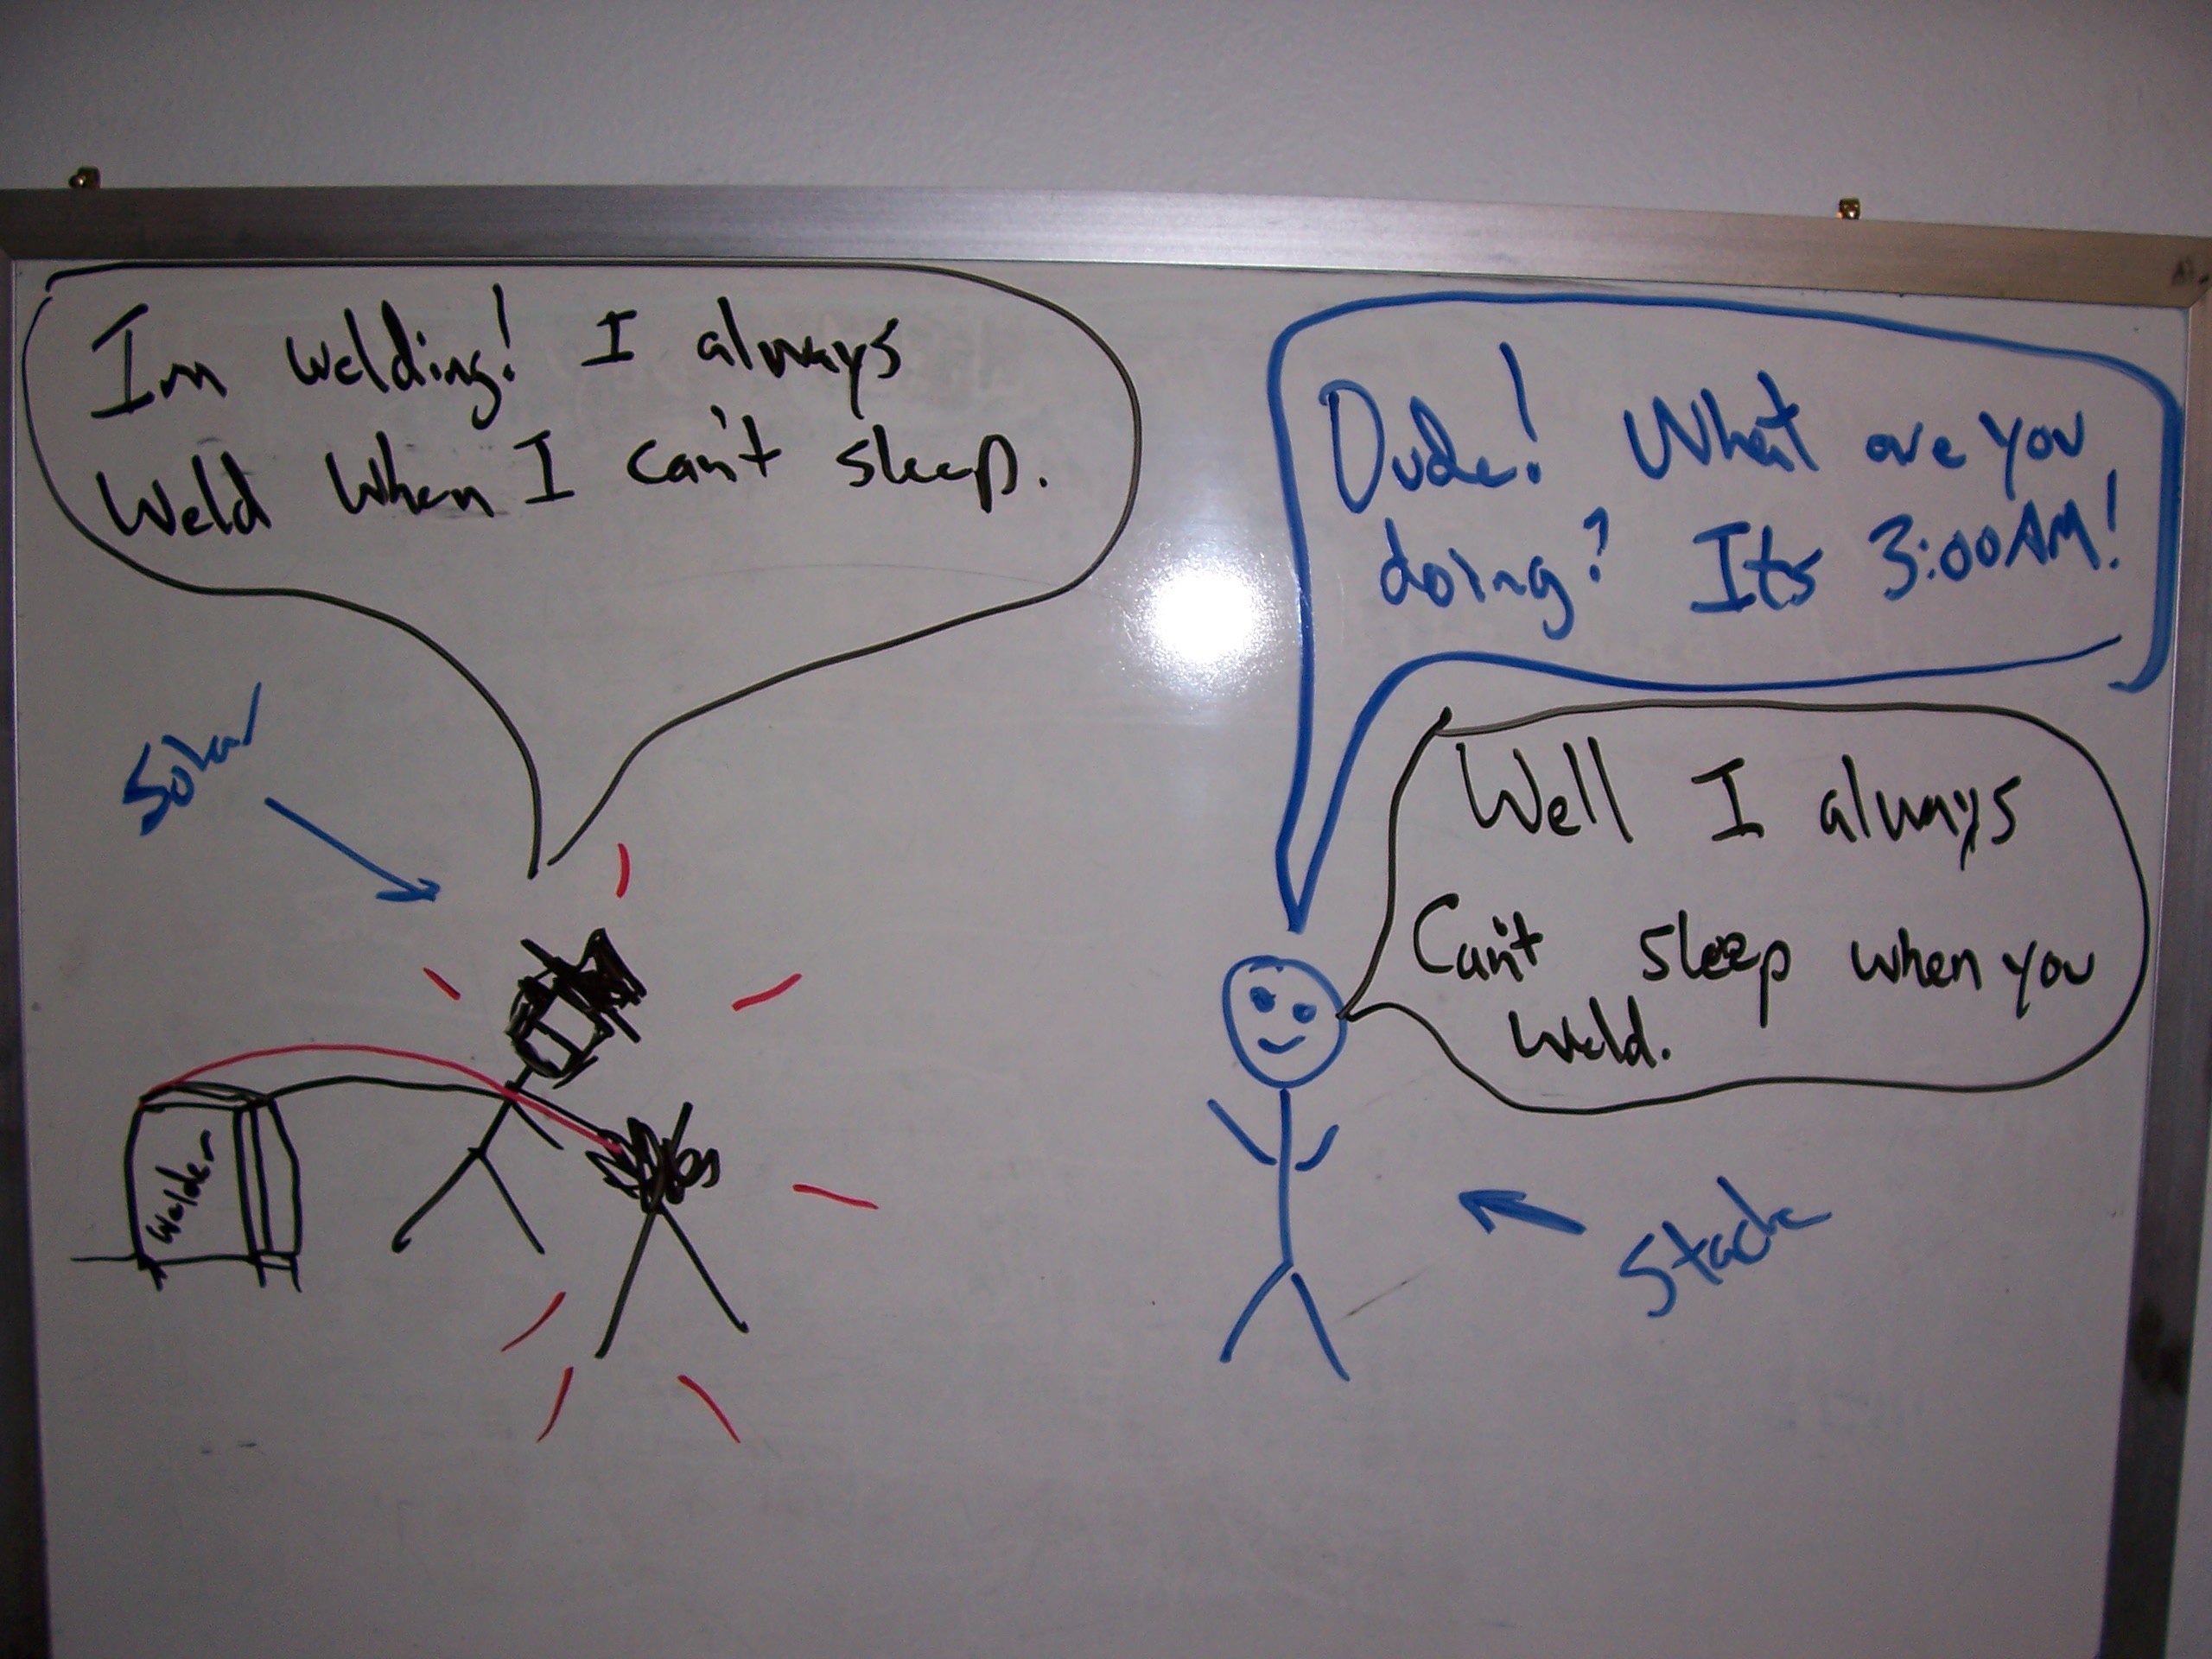 Im welding! I always
Weld when I can't sleep.
Dude! What are you
doing? Its 3:00AM!
Well I always
Can't sleep when you
weld.
Welder